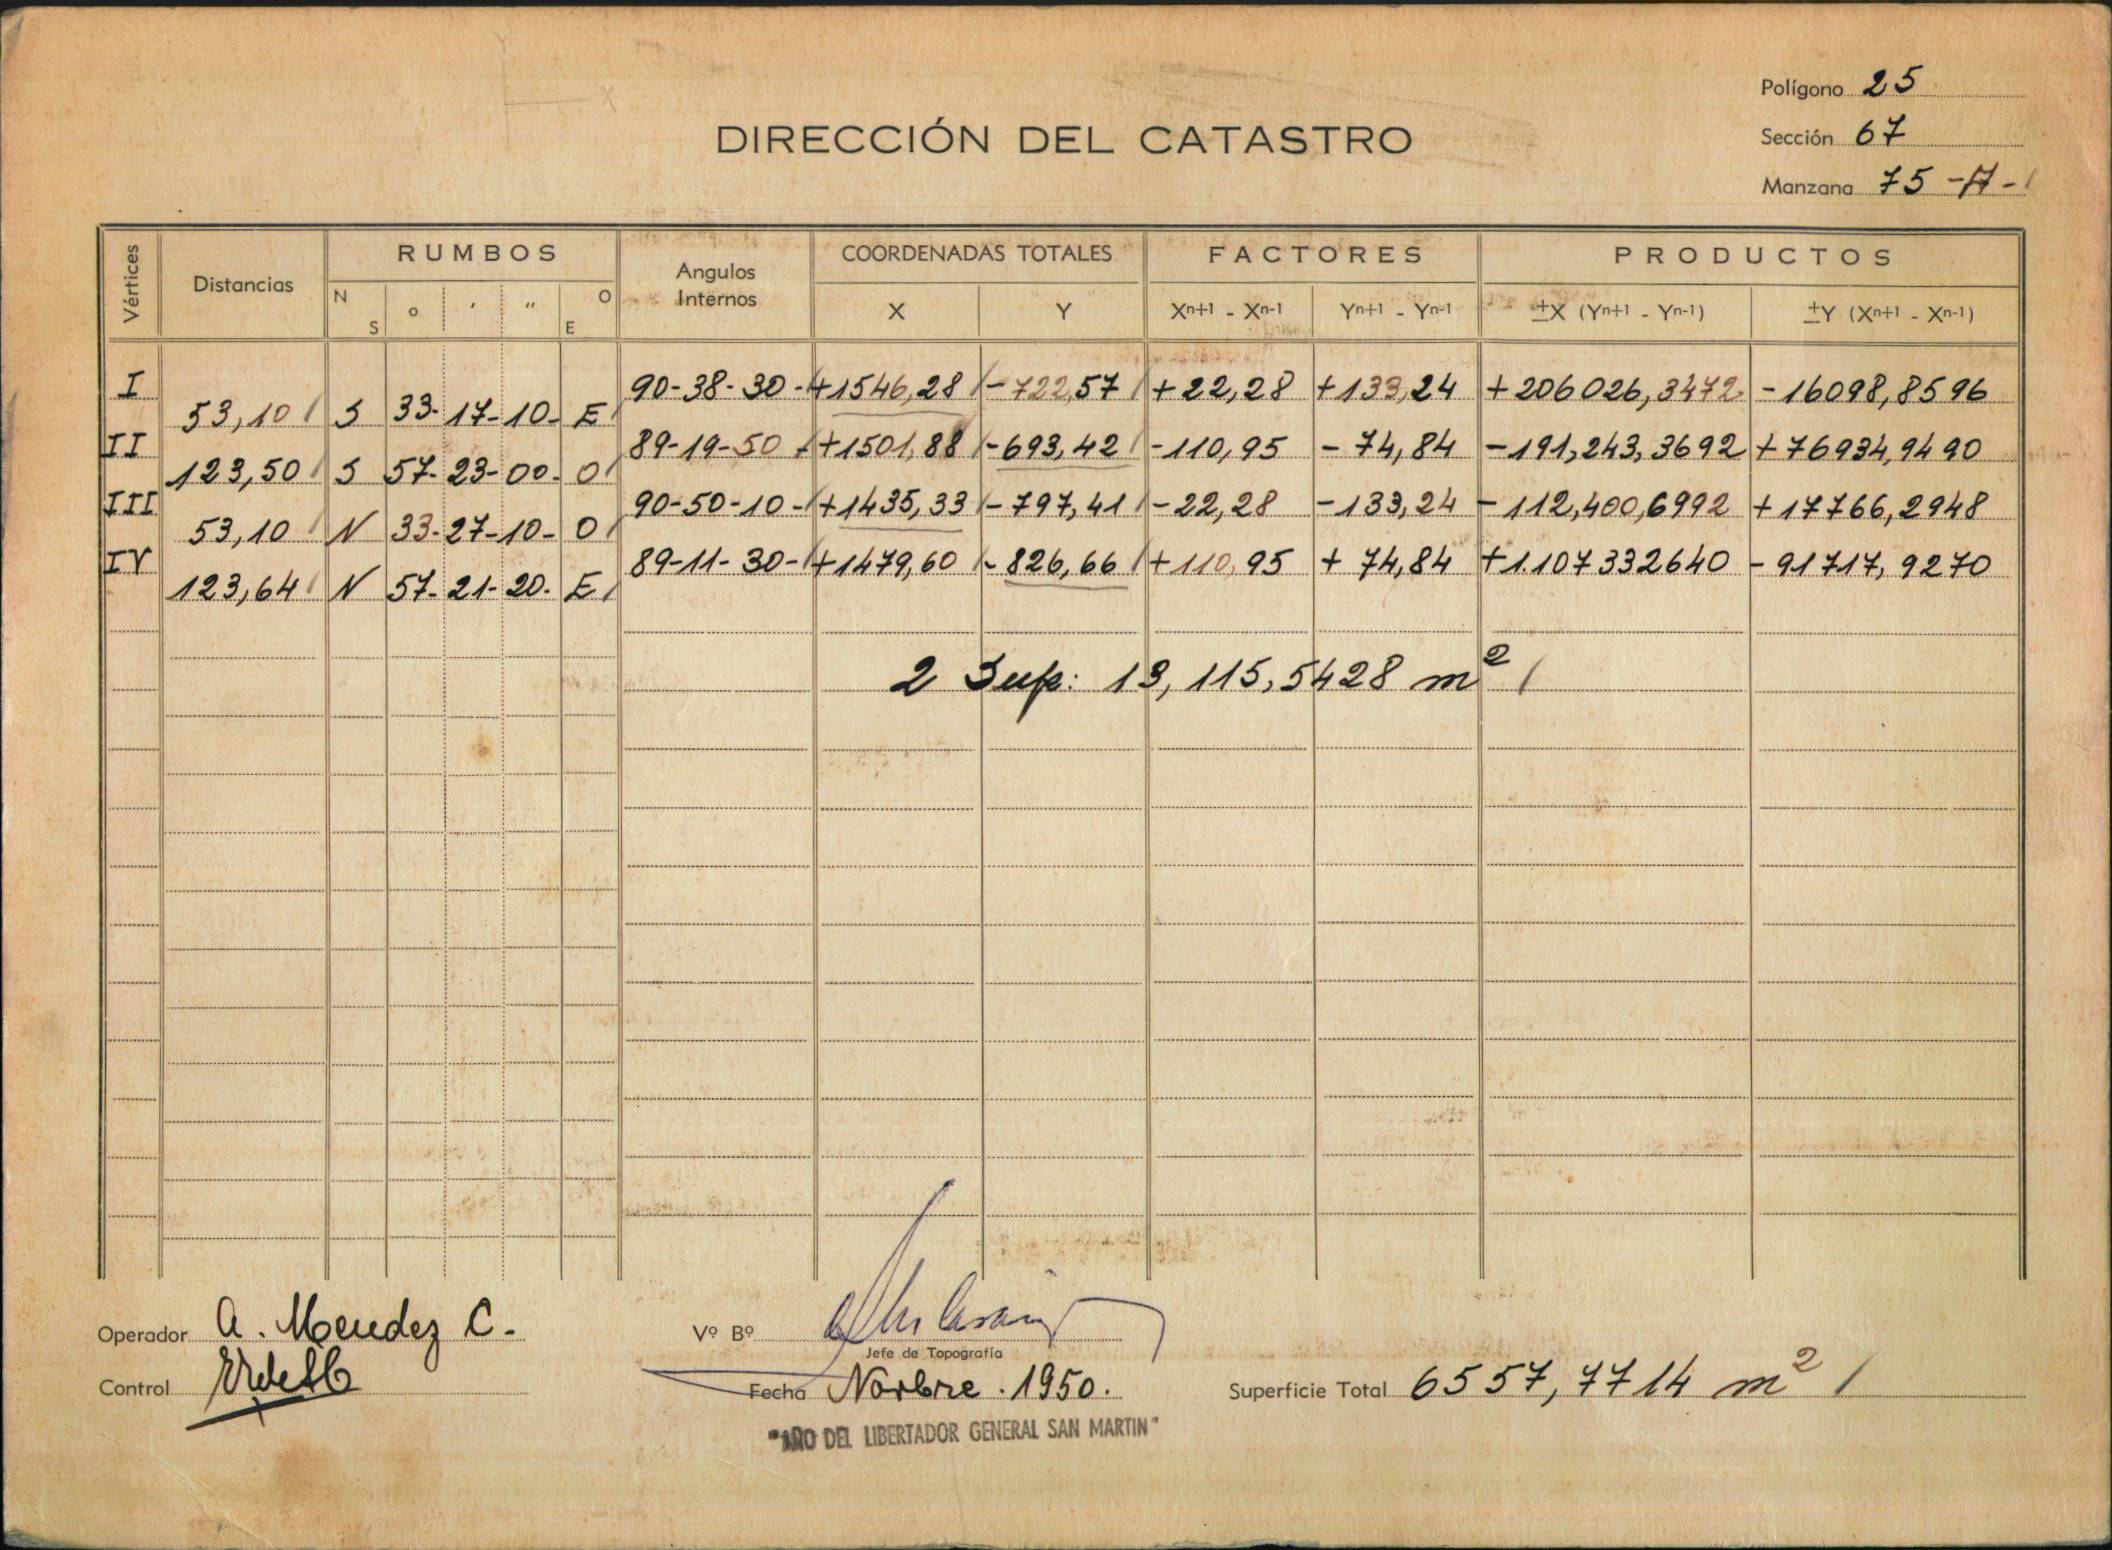 Polígono 25
DIRECCIÓN DEL CATASTRO
Sección 67
Manzana 75 -A-
Vértices Distancias RUMBOS Angulos Internos COORDENADAS TOTALES FACTORES PRODUCTOS
N S ° ' " O E X Y Xn+1 - Xn-1 Yn+1 - Yn-1 ±X (Yn+1 - Yn-1) ±Y (Xn+1 - Xn-1)
I 90-38-30- +1546,28 -722,57 +22,28 +133,24 +206026,3472 -16098,8596
53,10 S 33-17-10- E
II 89-19-50 +1501,88 -693,42 -110,95 -74,84 -191,243,3692 +76934,9490
123,50 S 57-23-00- O
III 90-50-10- +1435,33 -797,41 -22,28 -133,24 -112,400,6992 +17766,2948
53,10 N 33-27-10- O
IV 89-11-30- +1479,60 -826,66 +110,95 +74,84 +1.107332640 -91717,9270
123,64 N 57-21-20- E
2 Sup: 13,115,5428 m²
Operador A. Mendez C.
Vº Bº
Jefe de Topografía
Control
Fecha Novbre. 1950.
Superficie Total 6557,7714 m²
"AÑO DEL LIBERTADOR GENERAL SAN MARTIN"